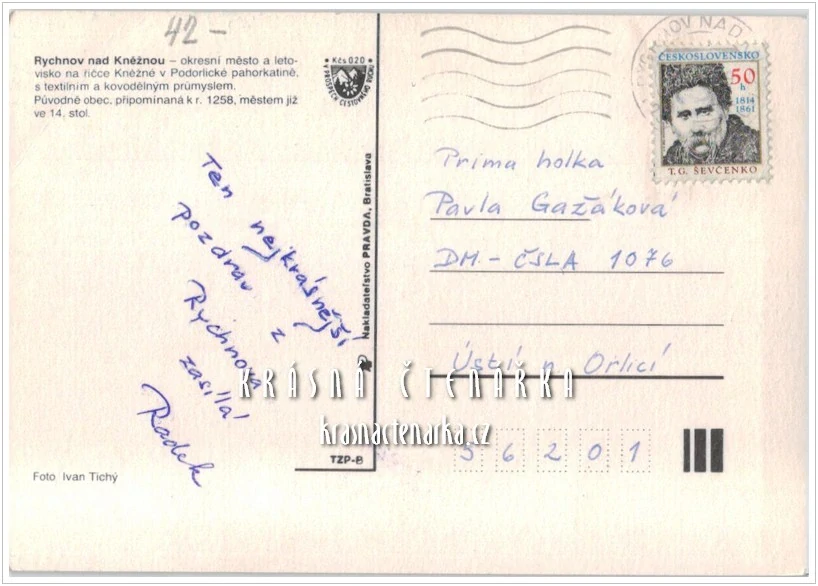 42-
Rychnov nad Kněžnou – okresní město a leto-
visko na říčce Kněžné v Podorlické pahorkatině,
s textilním a kovodělným průmyslem.
Původně obec, připomínaná k r. 1258, městem již
ve 14. stol.
Kčs 0,20
V PROSPĚCH CESTOVNÉHO RUCHU
Ten nejkrásnější
pozdrav z
Rychnova
zasílá
Radek
Foto Ivan Tichý
Nakladateľstvo PRAVDA, Bratislava
TZP-B
OV NAD
ČESKOSLOVENSKO
50
h
1814
1861
T. G. ŠEVČENKO
Prima holka
Pavla Gažáková
DM - ČSLA 1076
Ústí n. Orlicí
56201
KRÁSNÁ ČTENÁŘKA
krasnactenarka.cz